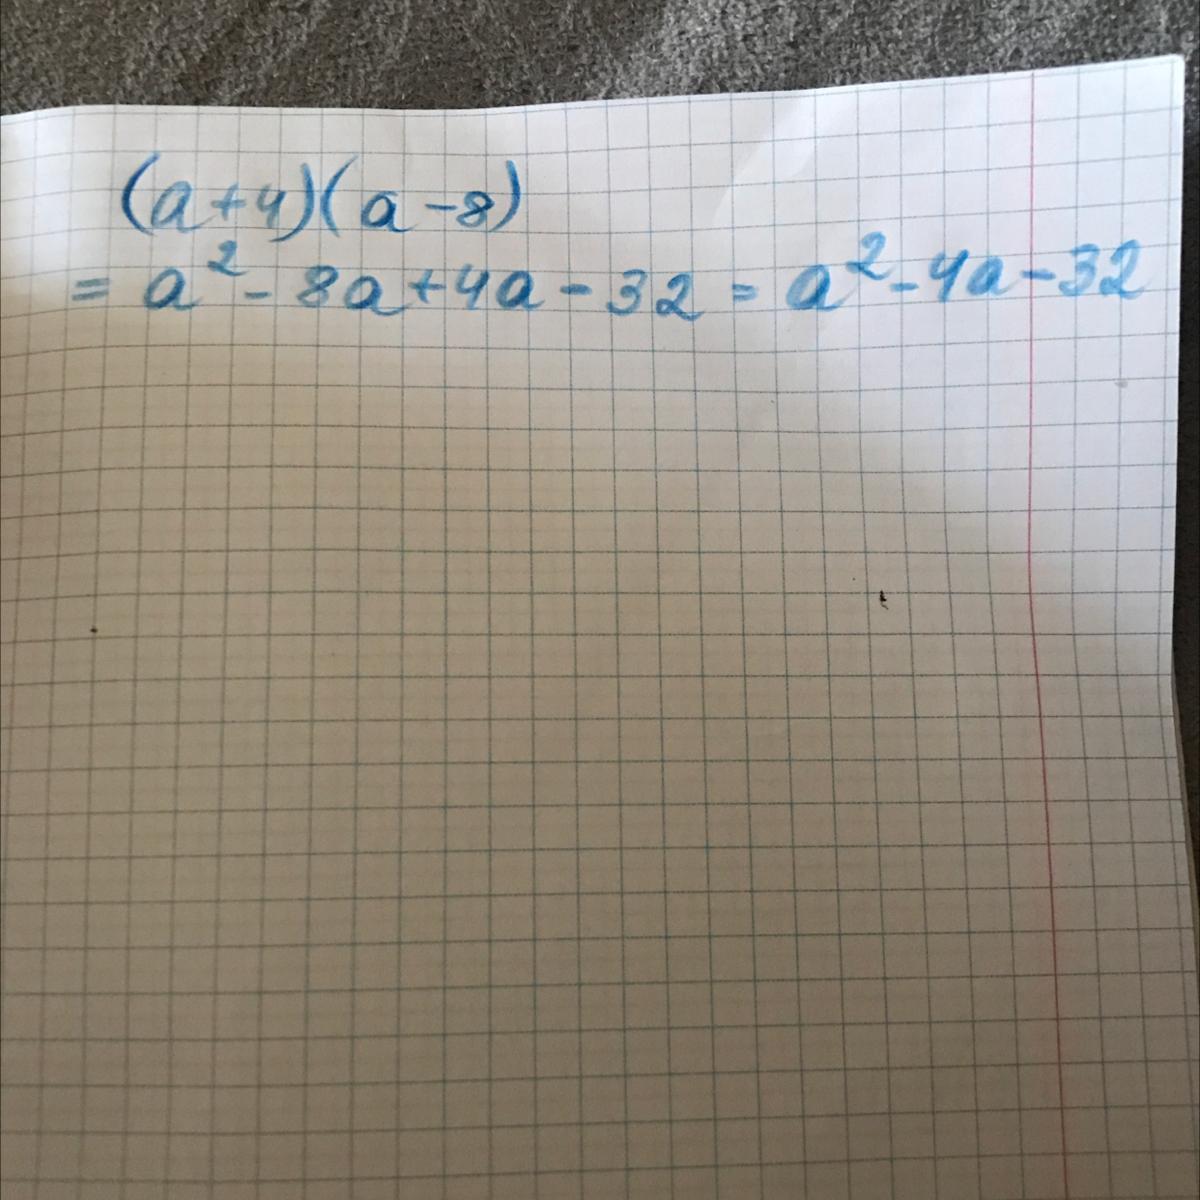 (a+4)(a-8)
= a² - 8a + 4a - 32 = a² - 4a - 32